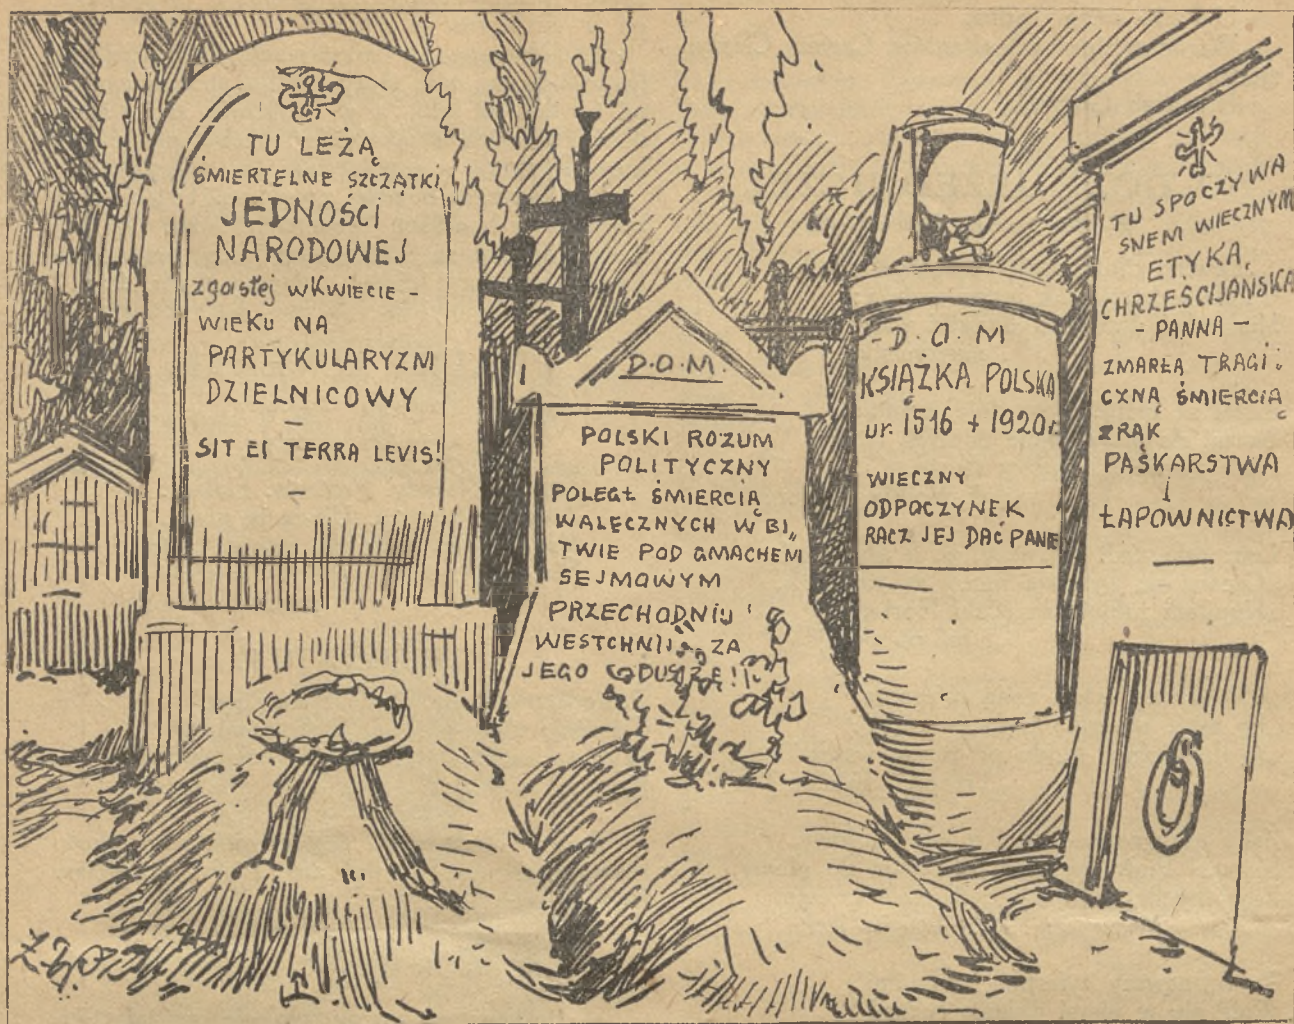 TU LEŻĄ
ŚMIERTELNE SZCZĄTKI
JEDNOŚCI
NARODOWEJ
zgasłej w KWIECIE -
WIEKU NA
PARTYKULARYZM
DZIELNICOWY
—
SIT EI TERRA LEVIS!
—
D.O.M.
POLSKI ROZUM
POLITYCZNY
POLEGŁ ŚMIERCIĄ
WALECZNYCH W BI„
TWIE POD GMACHEM
SEJMOWYM
PRZECHODNIU
WESTCHNIJ ZA
JEGO DUSZĘ!
D.O.M
KSIĄŻKA POLSKA
ur. 1516 + 1920 r.
WIECZNY
ODPOCZYNEK
RACZ JEJ DAĆ PANIE
TU SPOCZYWA
SNEM WIECZNYM
ETYKA
CHRZEŚCIJAŃSKA
- PANNA -
ZMARŁA TRAGI-
CZNĄ ŚMIERCIĄ
Z RĄK
PASKARSTWA
i
ŁAPOWNICTWA